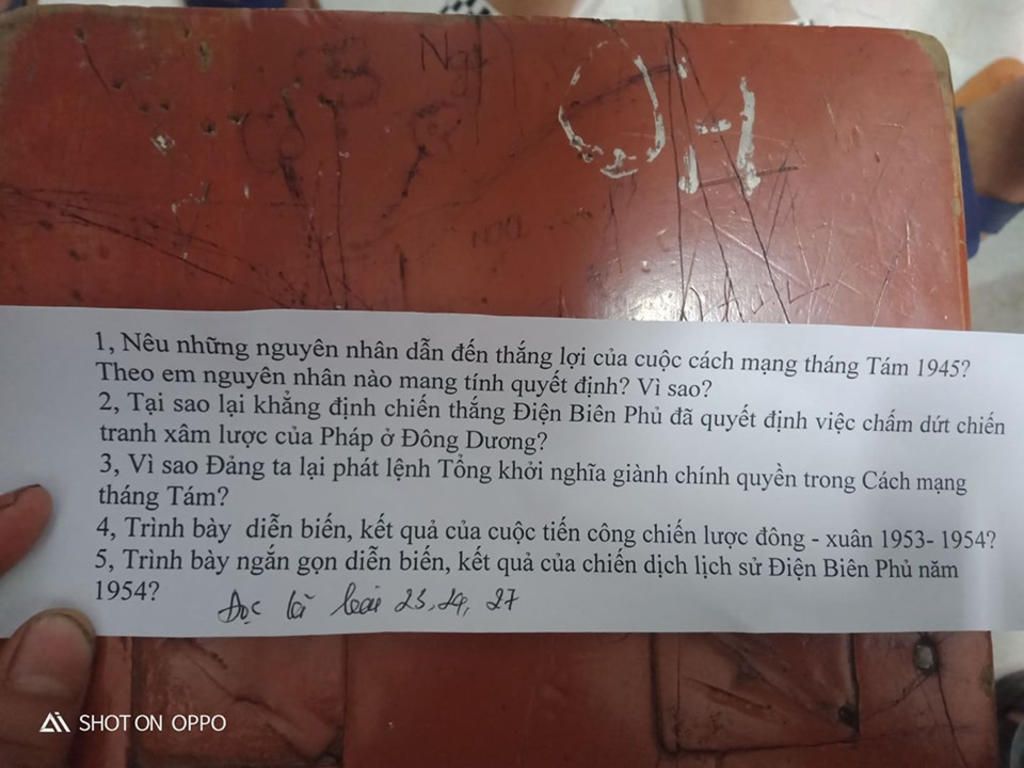 1, Nêu những nguyên nhân dẫn đến thắng lợi của cuộc cách mạng tháng Tám 1945?
Theo em nguyên nhân nào mang tính quyết định? Vì sao?
2, Tại sao lại khẳng định chiến thắng Điện Biên Phủ đã quyết định việc chấm dứt chiến
tranh xâm lược của Pháp ở Đông Dương?
3, Vì sao Đảng ta lại phát lệnh Tổng khởi nghĩa giành chính quyền trong Cách mạng
tháng Tám?
4, Trình bày diễn biến, kết quả của cuộc tiến công chiến lược đông - xuân 1953- 1954?
5, Trình bày ngắn gọn diễn biến, kết quả của chiến dịch lịch sử Điện Biên Phủ năm
1954?
Đọc 23, 24, 27
SHOT ON OPPO